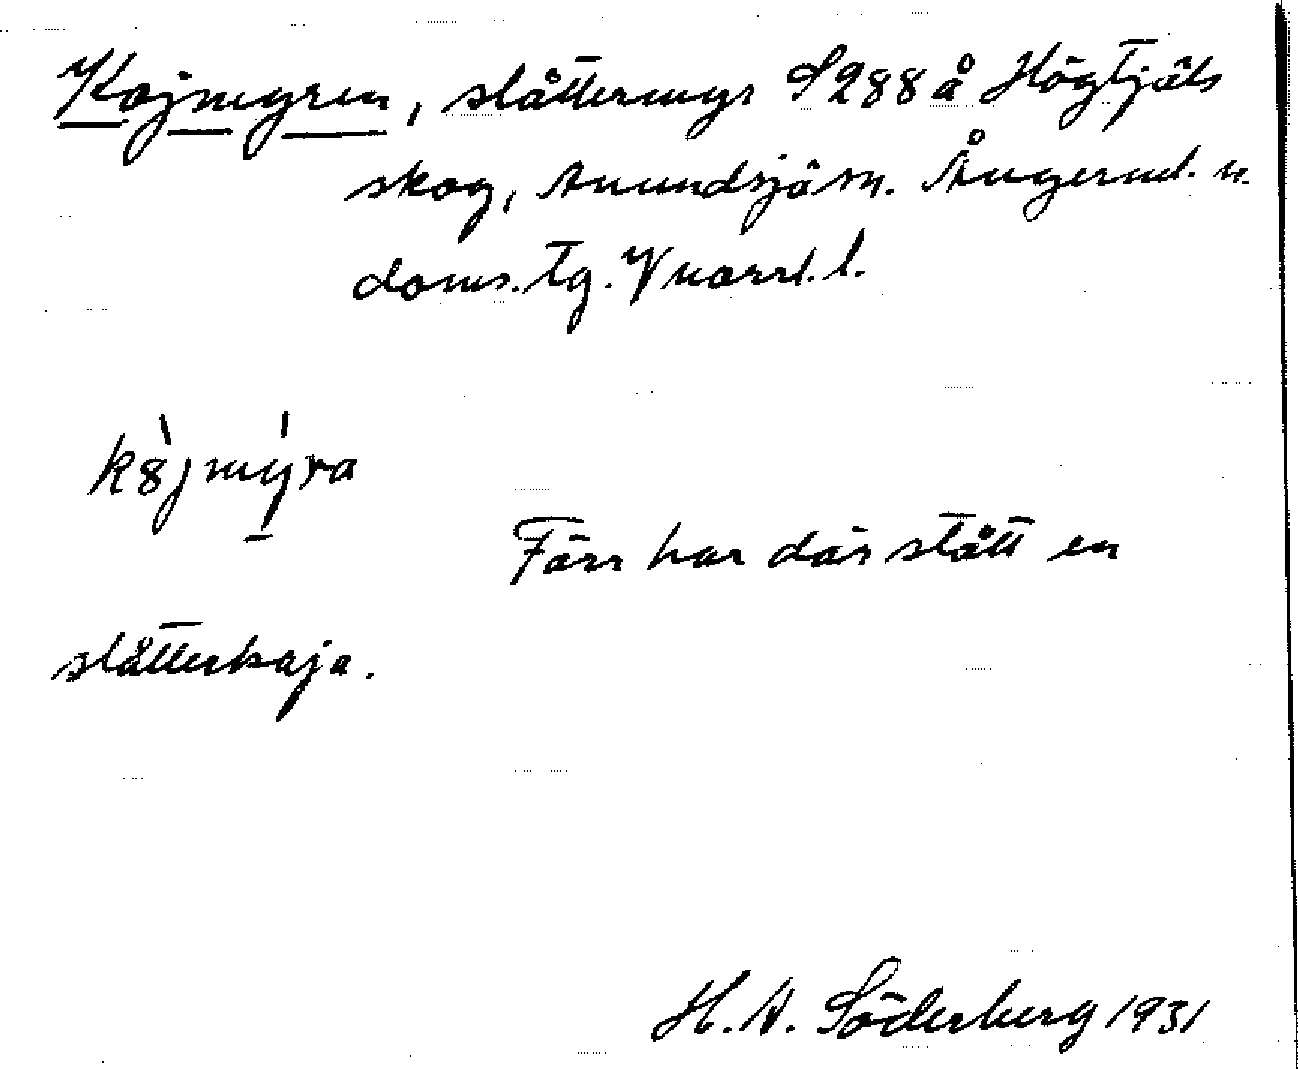 Kojmyren, slåttermyr S288 å Högtjäls
skog, Anundsjö sn. Ångerml. n.
doms. tg. Vnorrl. l.
kȣ̀jmýra
Förr har där stått en
slåtterkoja.
H. A. Söderberg 1931